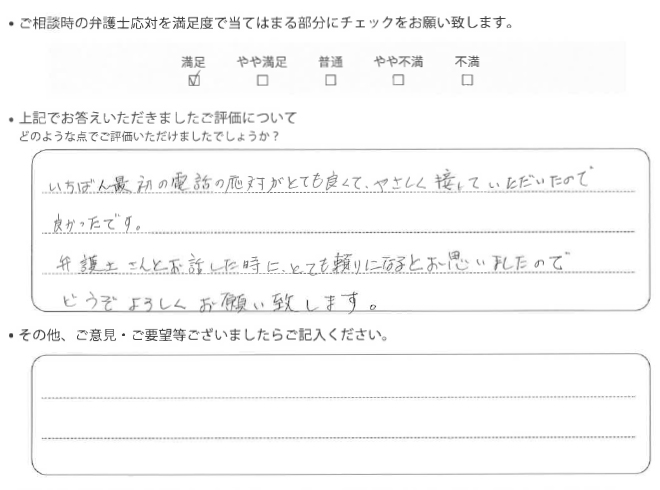 • ご相談時の弁護士応対を満足度で当てはまる部分にチェックをお願い致します。
満足 やや満足 普通 やや不満 不満
☑ □ □ □ □
• 上記でお答えいただきましたご評価について
どのような点でご評価いただけましたでしょうか？
いちばん最初の電話の応対がとても良くて、やさしく接していただいたので
良かったです。
弁護士さんとお話した時に、とても頼りになるとお思いましたので
どうぞよろしくお願い致します。
• その他、ご意見・ご要望等ございましたらご記入ください。